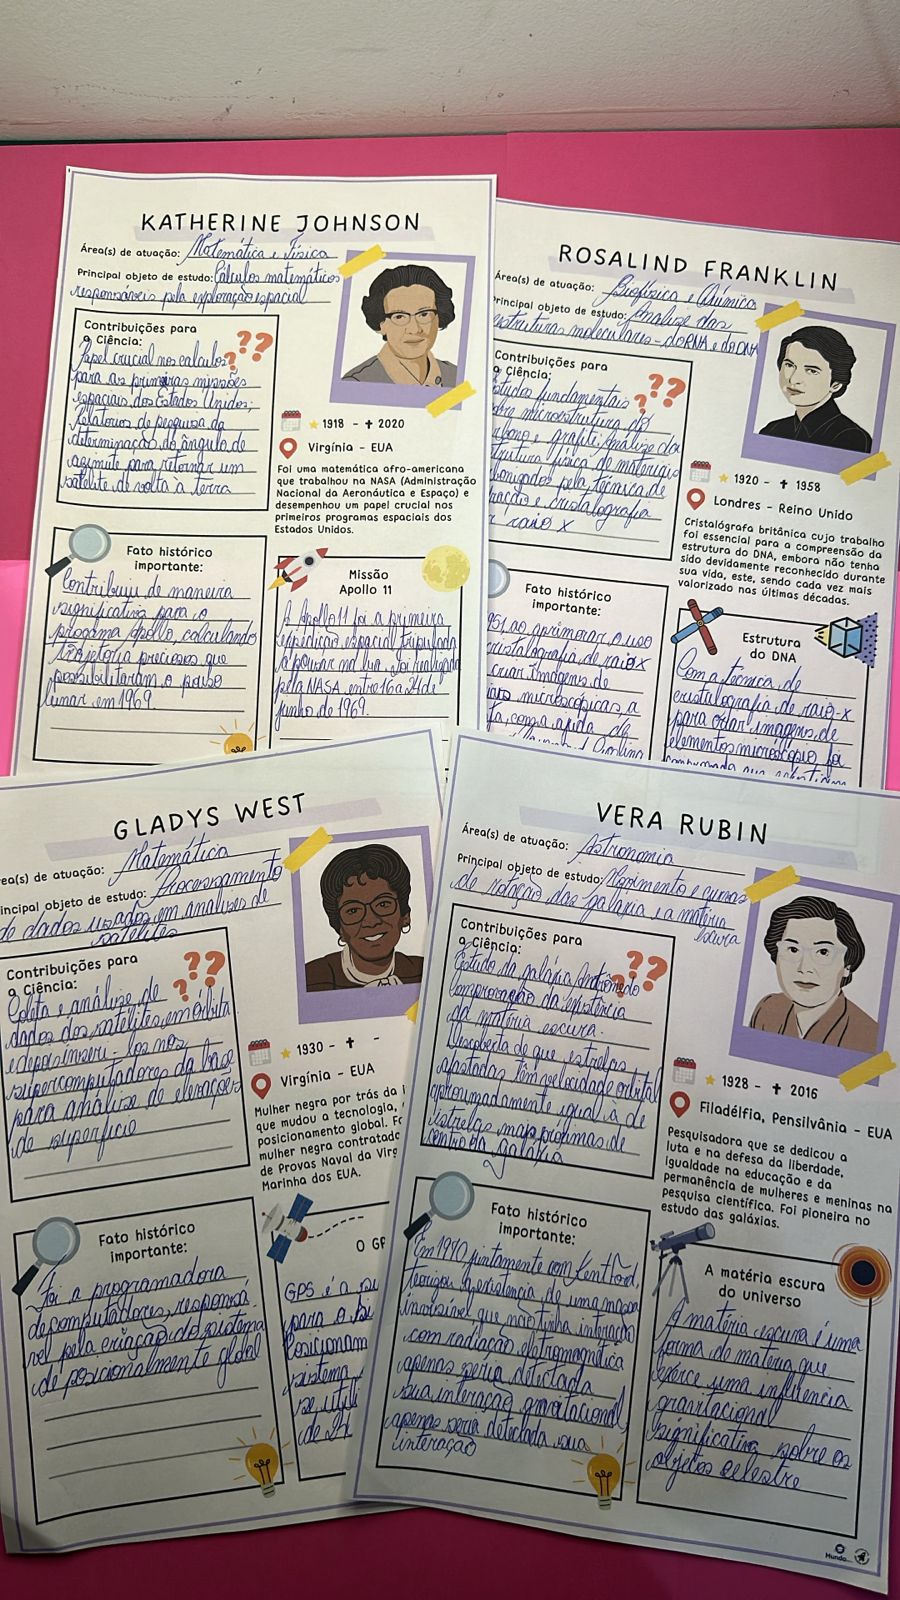 KATHERINE JOHNSON
Área(s) de atuação: Matemática e Física
Principal objeto de estudo: Cálculos matemáticos
responsáveis pela exploração espacial
Contribuições para
a Ciência:
Papel crucial nos calculos
para as primeiras missões
espaciais dos Estados Unidos,
Relatorios de pesquisa da
determinação do ângulo de
azimute para retornar um
satelite de volta à terra
1918 - ✝ 2020
Virgínia - EUA
Foi uma matemática afro-americana
que trabalhou na NASA (Administração
Nacional da Aeronáutica e Espaço) e
desempenhou um papel crucial nos
primeiros programas espaciais dos
Estados Unidos.
Fato histórico
importante:
Contribuiu de maneira
significativa para o
progama Apollo, calculando
Trajetoria precisas que
possibilitaram o pouso
lunar em 1969.
Missão
Apollo 11
A Apollo 11 foi a primeira
expedição espacial tripulada
a pousar na lua, foi realizada
pela NASA, entre 16 a 24 de
junho de 1969.
ROSALIND FRANKLIN
Área(s) de atuação: Biofísica e Química
Principal objeto de estudo: Análise das
estruturas moleculares - do RNA e do DNA
Contribuições para
a Ciência:
Estudos fundamentais
sobre microestrutura do
e grafite, Análise da
estrutura física de materiais
pela técnica de
e cristalografia
raio x
1920 - ✝ 1958
Londres - Reino Unido
Cristalógrafa britânica cujo trabalho
foi essencial para a compreensão da
estrutura do DNA, embora não tenha
sido devidamente reconhecido durante
sua vida, este, sendo cada vez mais
valorizado nas últimas décadas.
Fato histórico
importante:
ao aprimorar o uso
cristalografia de raio x
criar imagens de
microscópicas, a
com a ajuda de
Estrutura
do DNA
Com a técnica de
cristalografia de raio-x
para criar imagens de
elementos microscópio, foi
GLADYS WEST
rea(s) de atuação: Matemática
incipal objeto de estudo: Processamento
de dados usados em análises de
satelites
Contribuições para
a Ciência:
Coleta e análise de
dados dos satelites em órbita
e depois inseri-los nos
supercomputadores da base
para análise de elevações
de superficie
1930 - ✝ -
Virgínia - EUA
Mulher negra por trás da i
que mudou a tecnologia,
posicionamento global. Fo
mulher negra contratada
de Provas Naval da Virg
Marinha dos EUA.
Fato histórico
importante:
Foi a programadora
de computadores, responsá
vel pela criação do sistema
de posicionalmente global
O GP
GPS é a
para a
Posicionam
sistema
se utili
de
VERA RUBIN
Área(s) de atuação: Astronomia
Principal objeto de estudo: Movimento e curvas
de rotação das galáxia e a matéria
escura
Contribuições para
a Ciência:
Estudo da galáxia Andrômeda
Comprovação da existência
da matéria escura.
Descoberta de que estrelas
afastadas têm velocidade orbital
aproximadamente igual à de
estrelas mais próximas de
centro da galáxia
1928 - ✝ 2016
Filadélfia, Pensilvânia - EUA
Pesquisadora que se dedicou a
luta e na defesa da liberdade,
igualdade na educação e da
permanência de mulheres e meninas na
pesquisa científica. Foi pioneira no
estudo das galáxias.
Fato histórico
importante:
Em 1970 juntamente com Kent Ford,
teorizou a existencia de uma massa
invisível, que não tinha interação
com radiação eletromagnética
apenas seria detectada
sua interação gravitacional,
apenas seria detectada sua
interação
A matéria escura
do universo
A matéria escura é uma
forma de matéria que
exerce uma influência
gravitacional
significativa sobre os
objetos celestre
Mundo